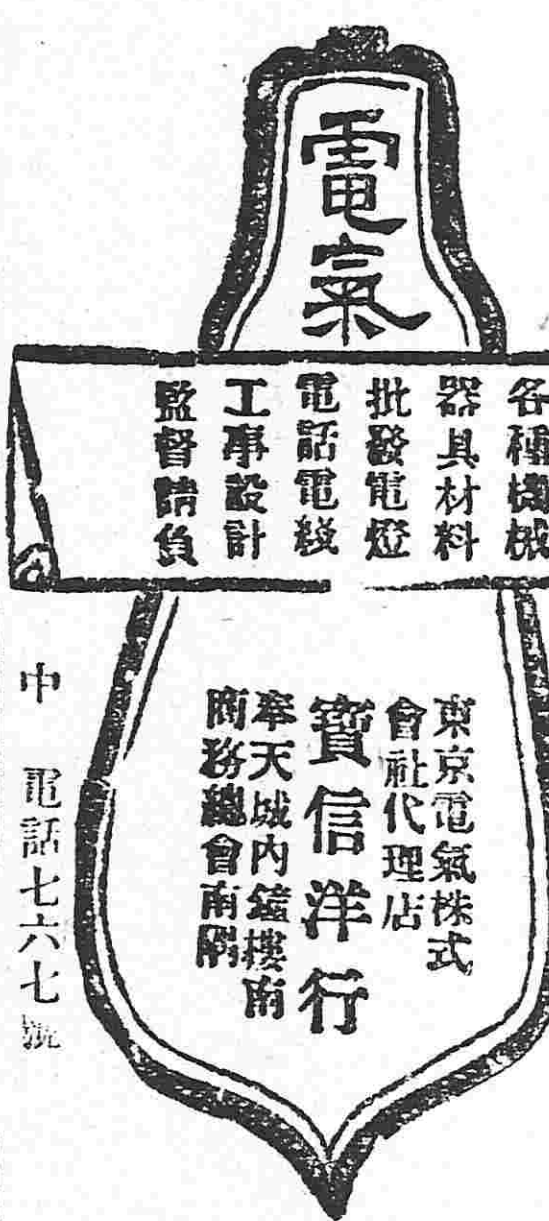 電氣
各種機械
器具材料
批發電燈
電話電綫
工事設計
監督請負
東京電氣株式
會社代理店
寶信洋行
奉天城內鐘樓南
商務總會南隣
中 電話七六七號